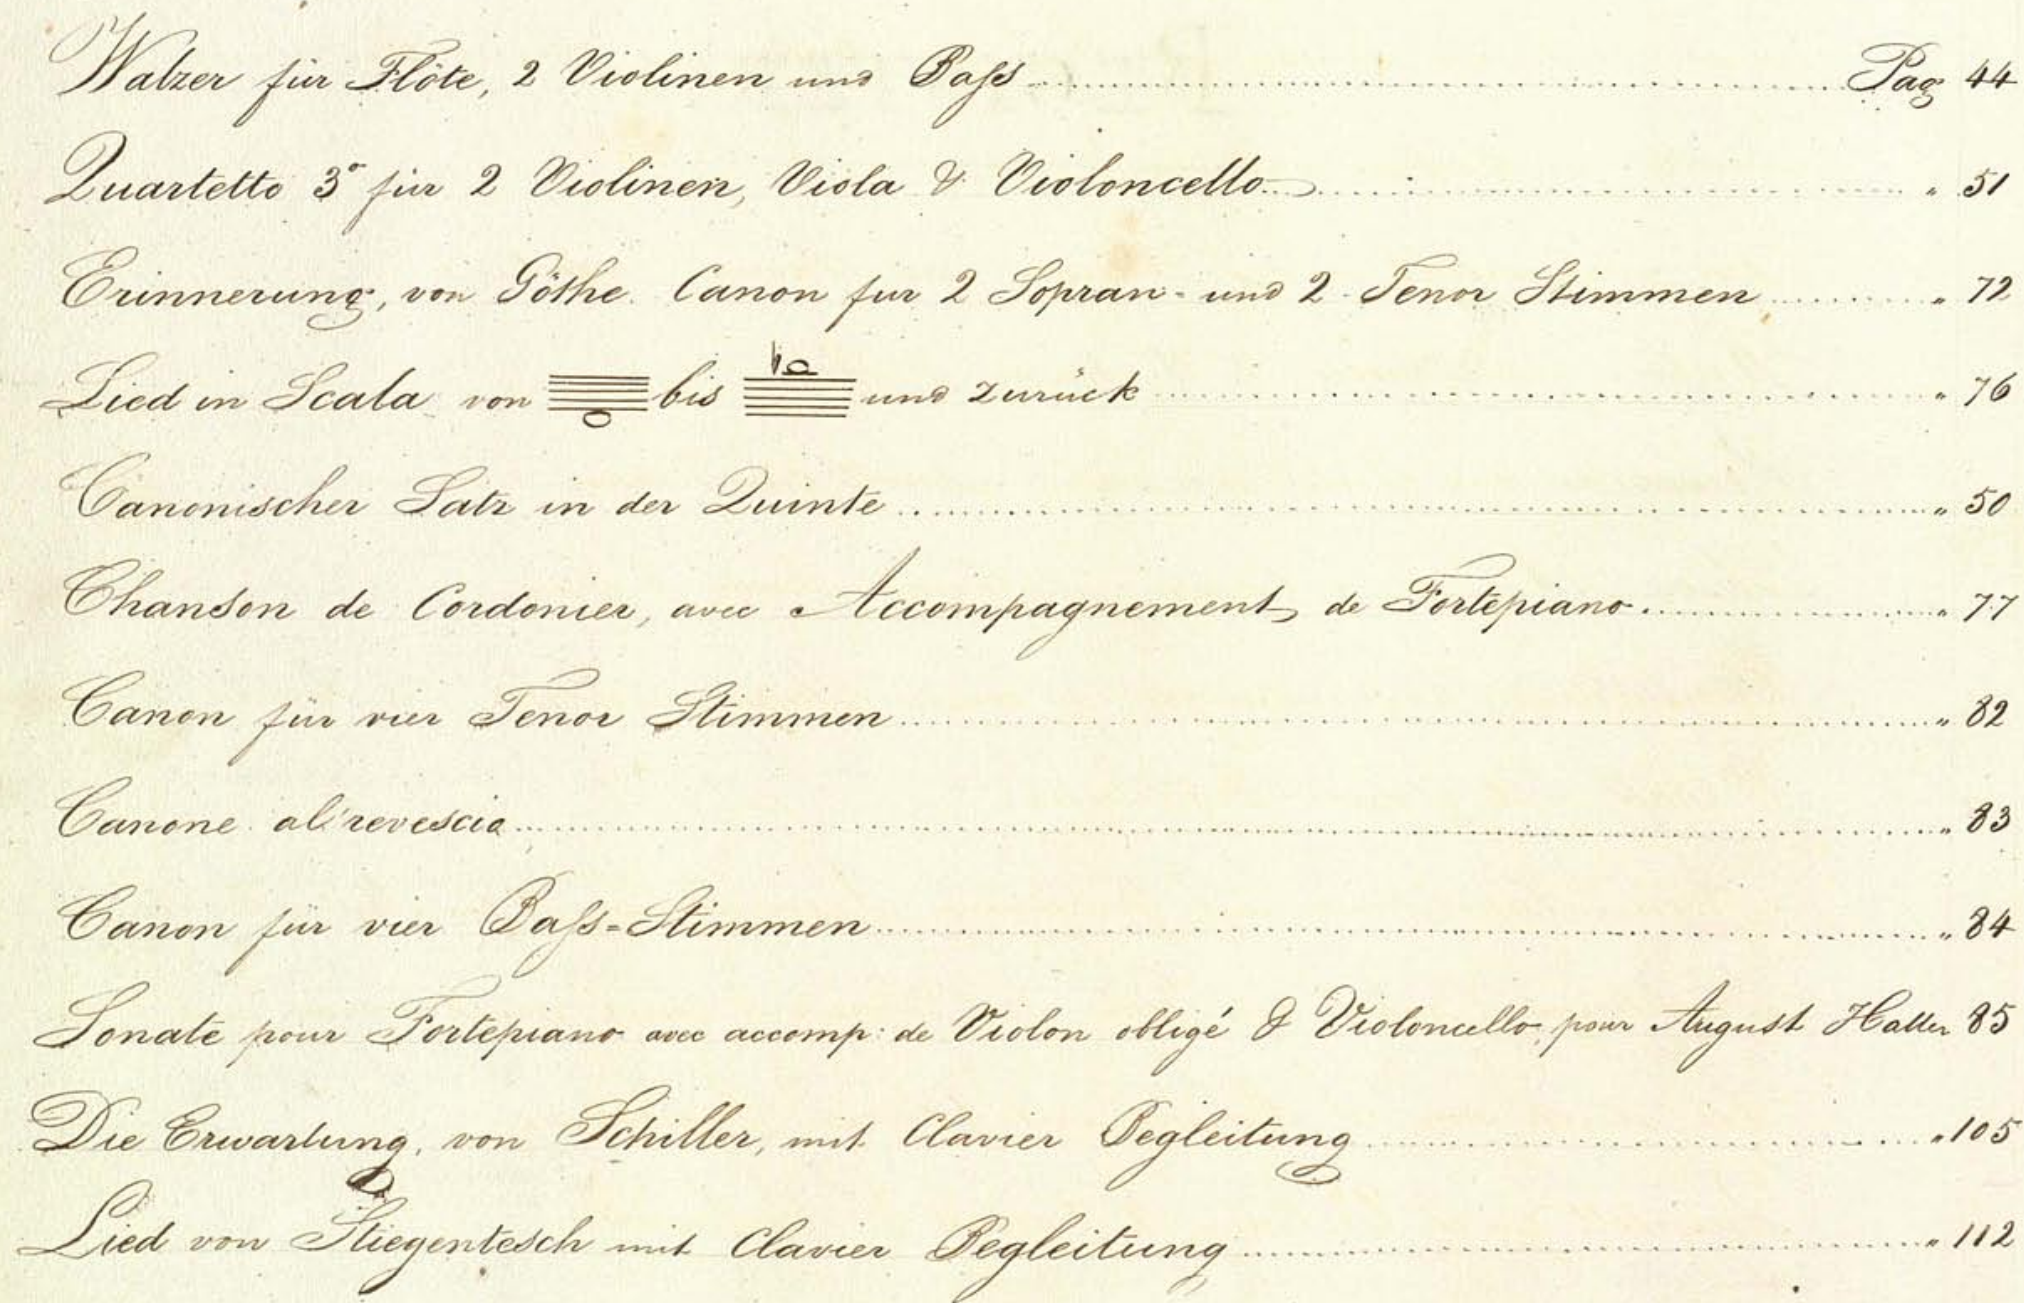 Walzer für Flöte, 2 Violinen und Baſs ... Pag 44
Quartetto 3º für 2 Violinen, Viola & Violoncello ... " 51
Erinnerung, von Göthe. Canon fur 2 Sopran- und 2 Tenor Stimmen ... " 72
Lied in Scala von bis und zurück ... " 76
Canonischer Satz in der Quinte ... " 50
Chanson de Cordonier, avec Accompagnement de Fortepiano ... " 77
Canon für vier Tenor Stimmen ... " 82
Canone al'revescia ... " 83
Canon für vier Baſs=Stimmen ... " 84
Sonate pour Fortepiano avec accomp: de Violon obligé & Violoncello, pour August Haller 85
Die Erwartung, von Schiller, mit Clavier Begleitung ... " 105
Lied von Stiegentesch mit Clavier Begleitung ... " 112